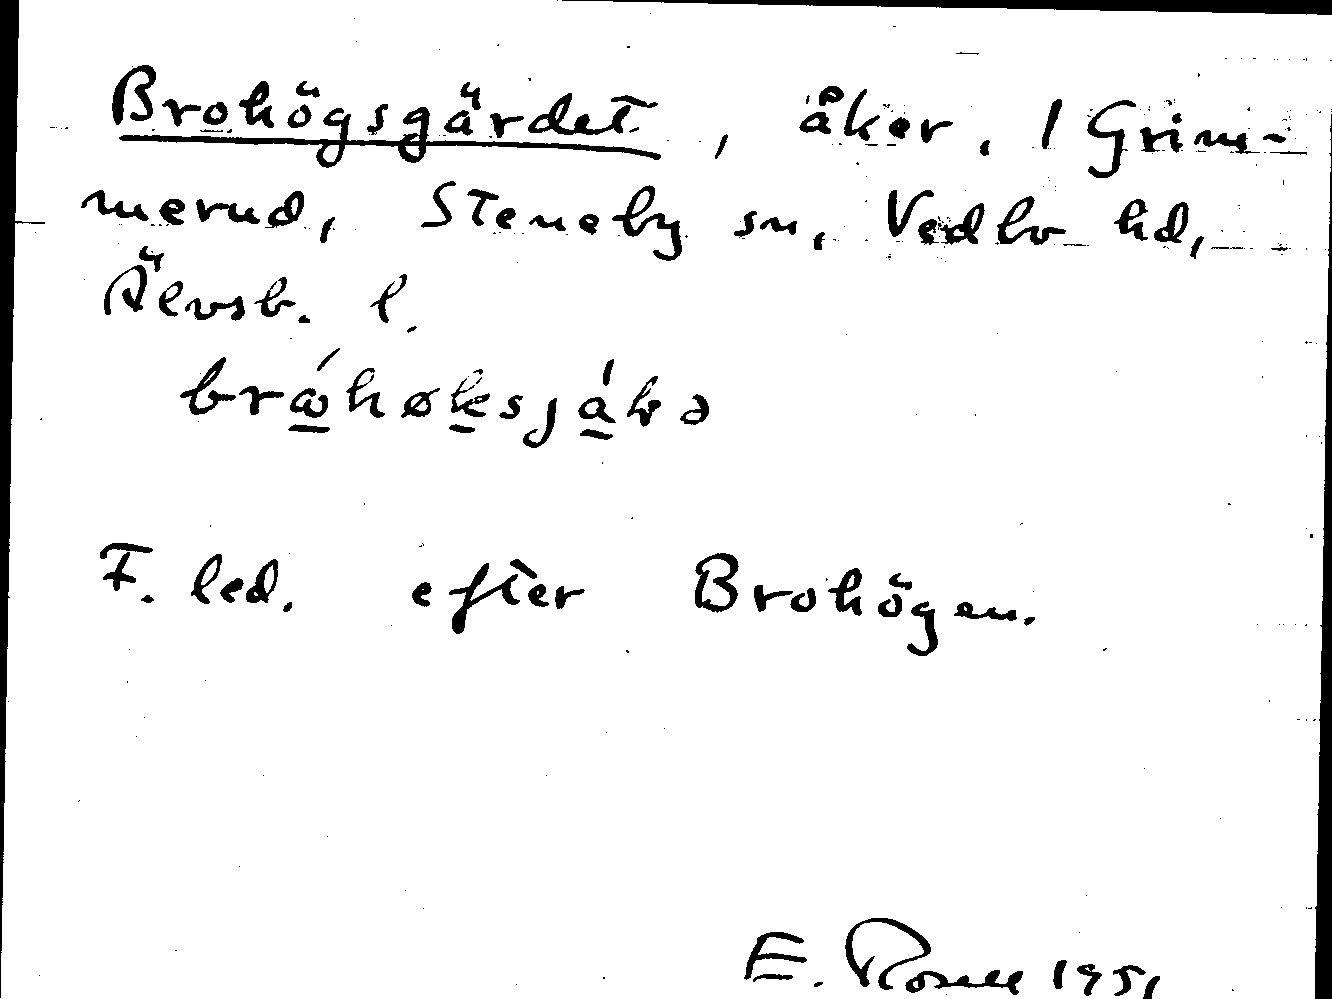 Brohögsgärdet, åker. 1 Grim-
merud, Steneby sn, Vedbo hd,
Älvsb. l.
F. led. efter Brohögen.
E. Rosell 1951